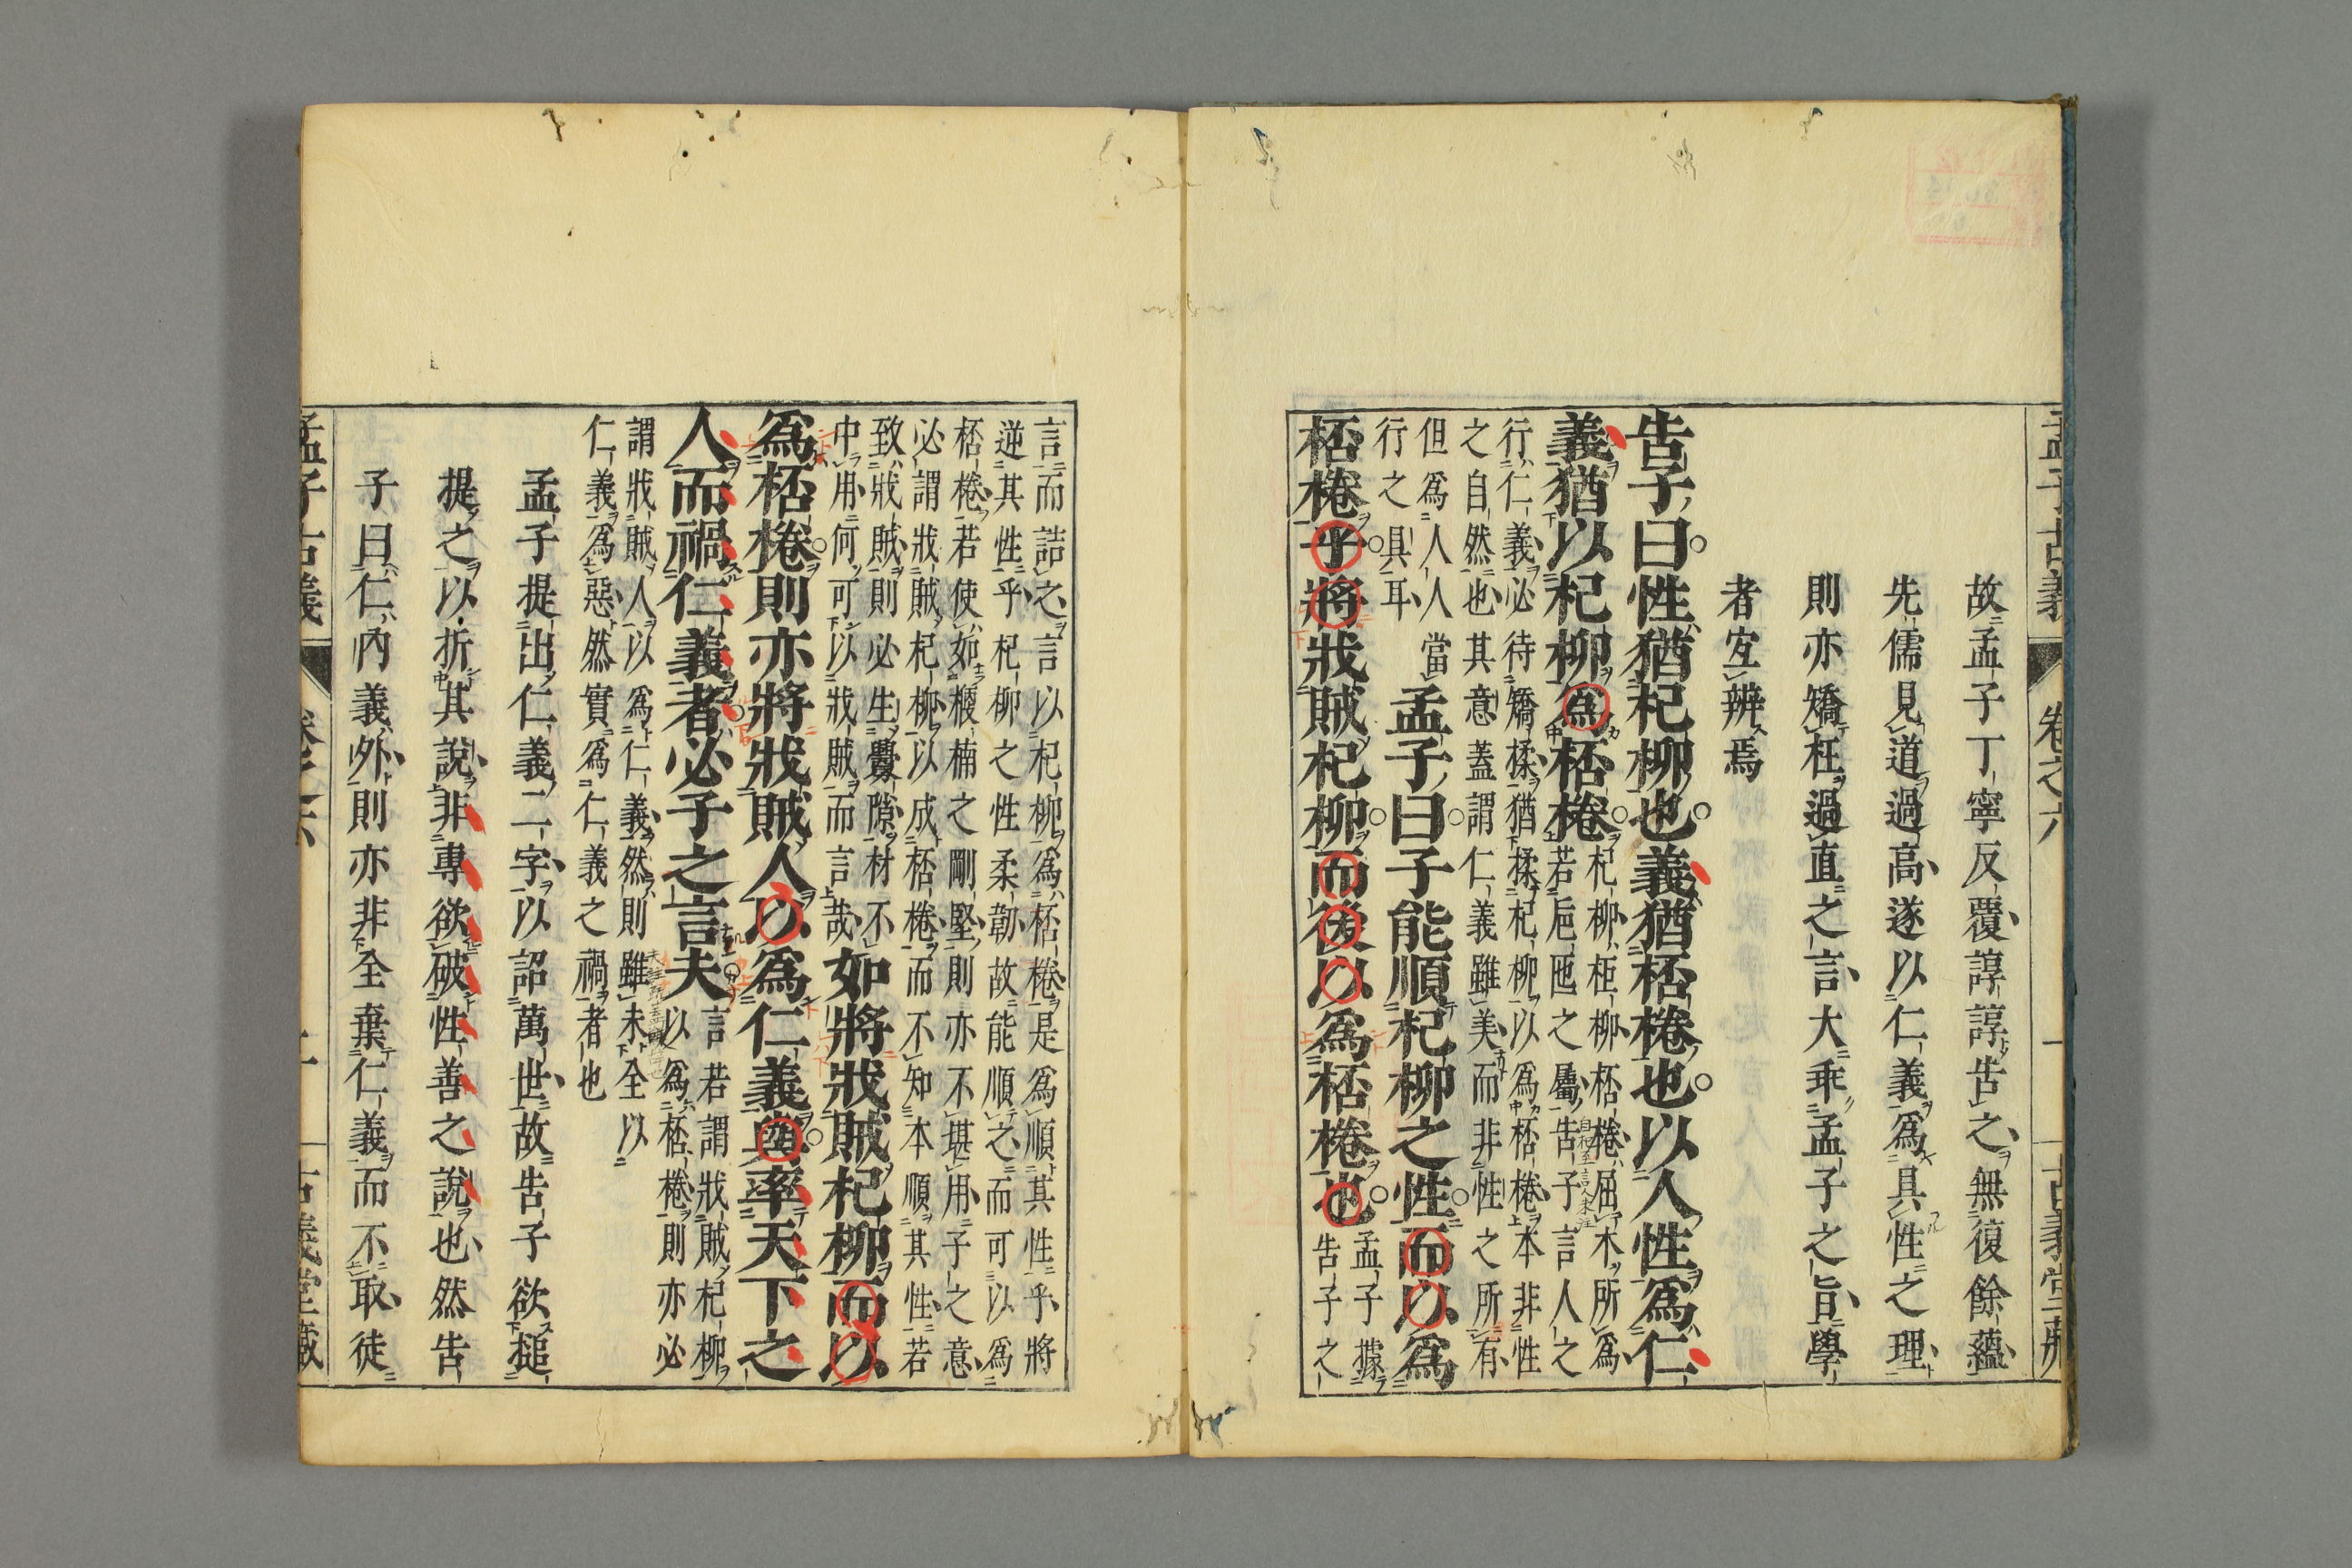 孟子古義
卷之六
古義堂藏
故孟子丁寧反覆諄諄告之無復餘蘊
先儒見道過高遂以仁義爲具性之理
則亦矯枉過直之言大乖孟子之旨學
者宐辨焉
告子曰性猶杞柳也義猶桮棬也以人性爲仁
義猶以杞柳爲桮棬
杞柳柜柳桮棬屈木所爲
若巵匜之屬告子言人之
行仁義必待矯揉猶揉杞柳以爲桮棬本非性
之自然也其意蓋謂仁義雖美而非性之所有
但爲人人當
行之具耳
孟子曰子能順杞柳之性而以爲
桮棬乎將戕賊杞柳而後以爲桮棬也
孟子據
告子之
言而詰之言以杞柳爲桮棬是爲順其性乎將
逆其性乎杞柳之性柔韌故能順之而可以爲
桮棬若使如櫃楠之剛堅則亦不堪用子之意
必謂戕賊杞柳以成桮棬而不知本順其性若
致戕賊則必生釁隙材不
中用何可以戕賊而言哉
如將戕賊杞柳而以
爲桮棬則亦將戕賊人以爲仁義與率天下之
人而禍仁義者必子之言夫
言若謂戕賊杞柳
以爲桮棬則亦必
謂戕賊人以爲仁義然則雖未全以
仁義爲惡然實爲仁義之禍者也
孟子提出仁義二字以詔萬世故告子欲搥
提之以折其說非專欲破性善之說也然告
子曰仁內義外則亦非全棄仁義而不取徒
孟子古義
古義堂藏